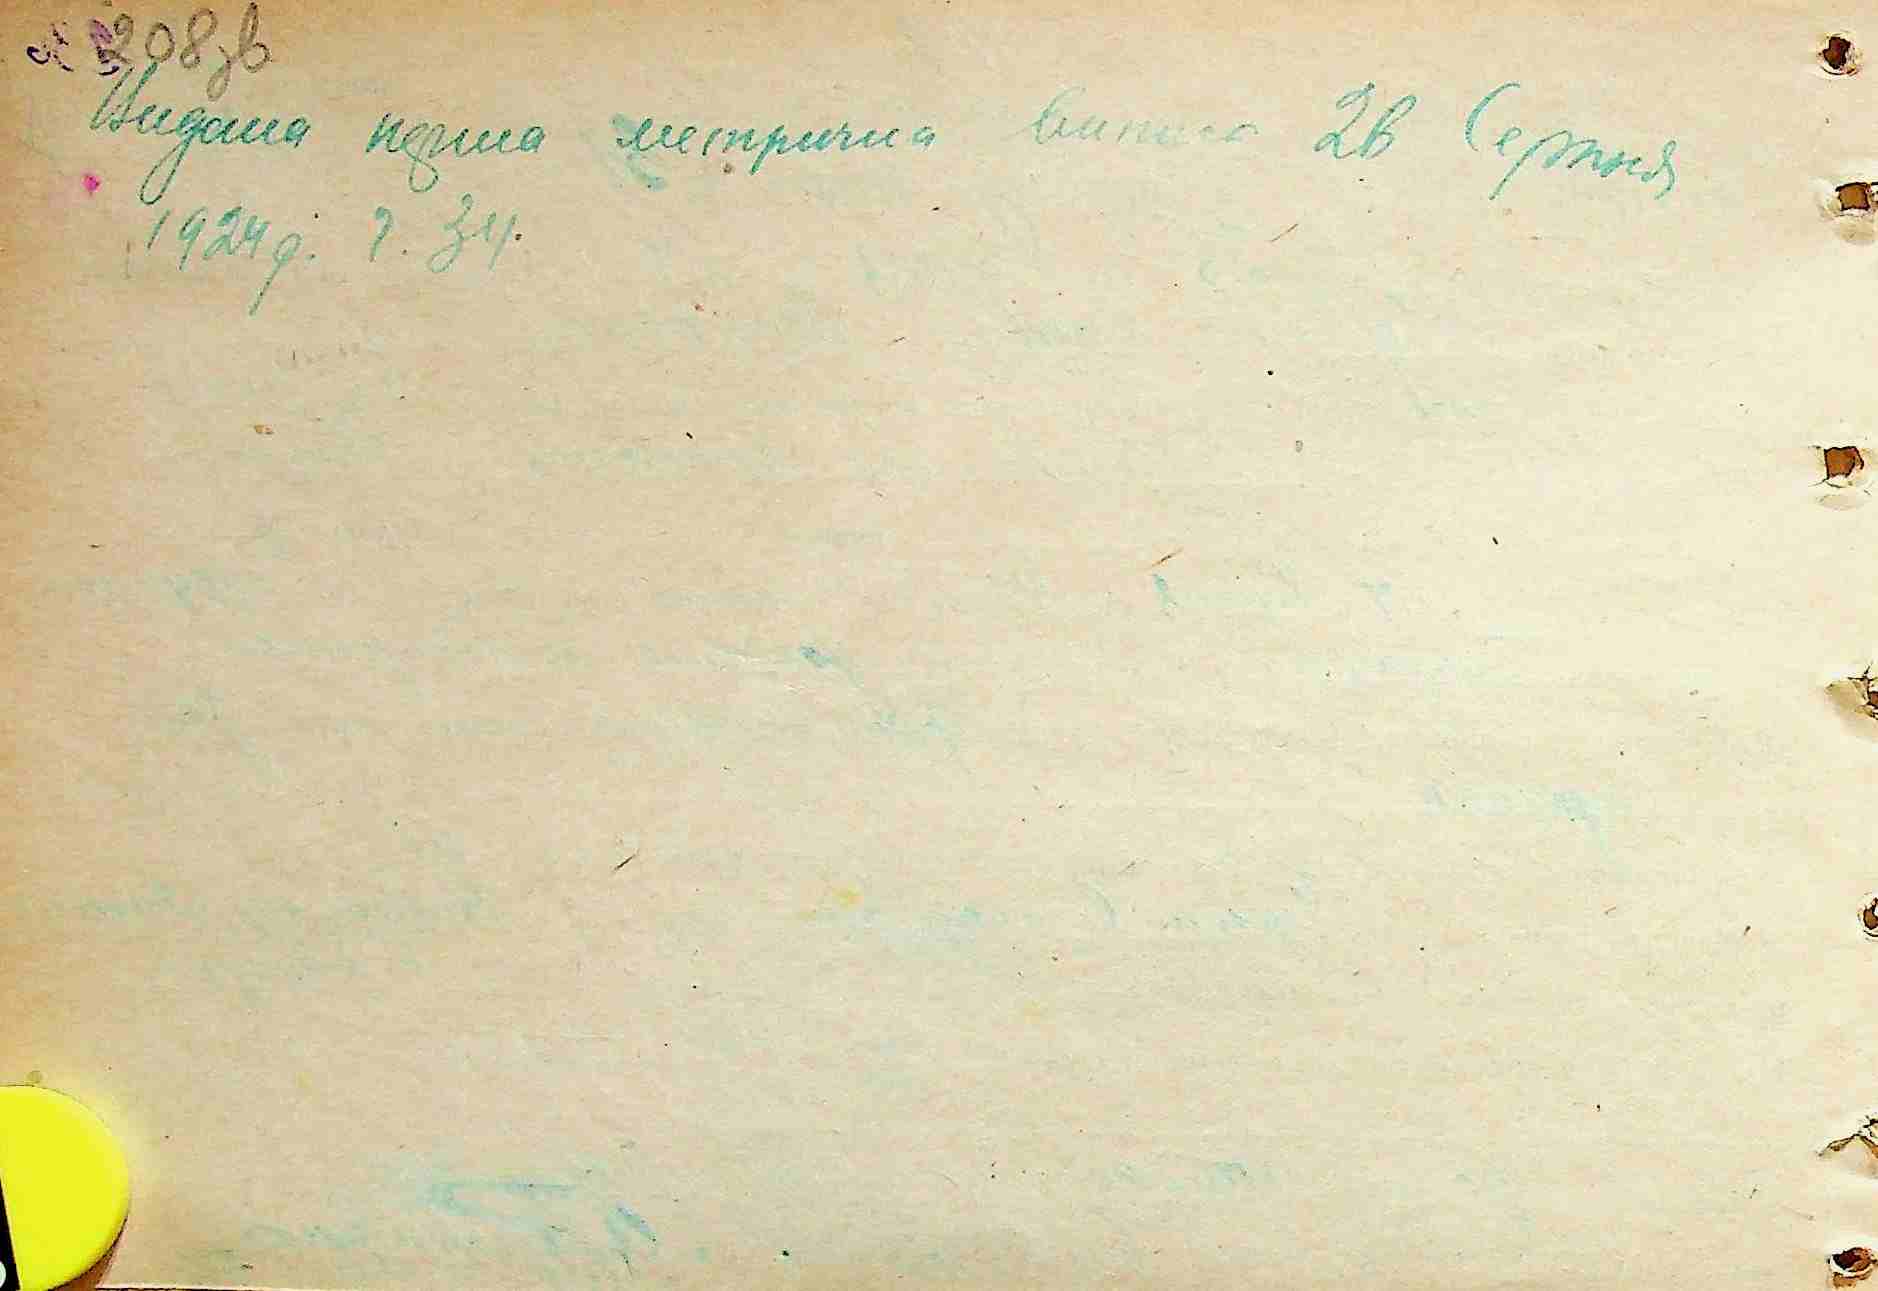 208зв
Видана перша метрична випись 28 Серпня
1924р. Ч. 34.